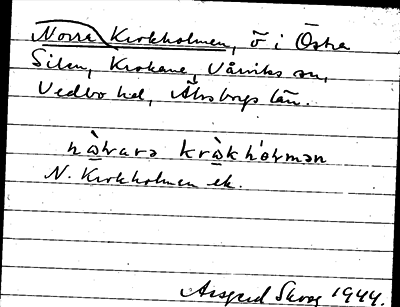 Norra Kyrkholmen, ö i Östra
Silen, Krokane, Vårviks sn,
Vedbo hd, Älvsborgs län.
nàrara kràkhòlmən
N. Kyrkholmen ek.
Skog 1944.